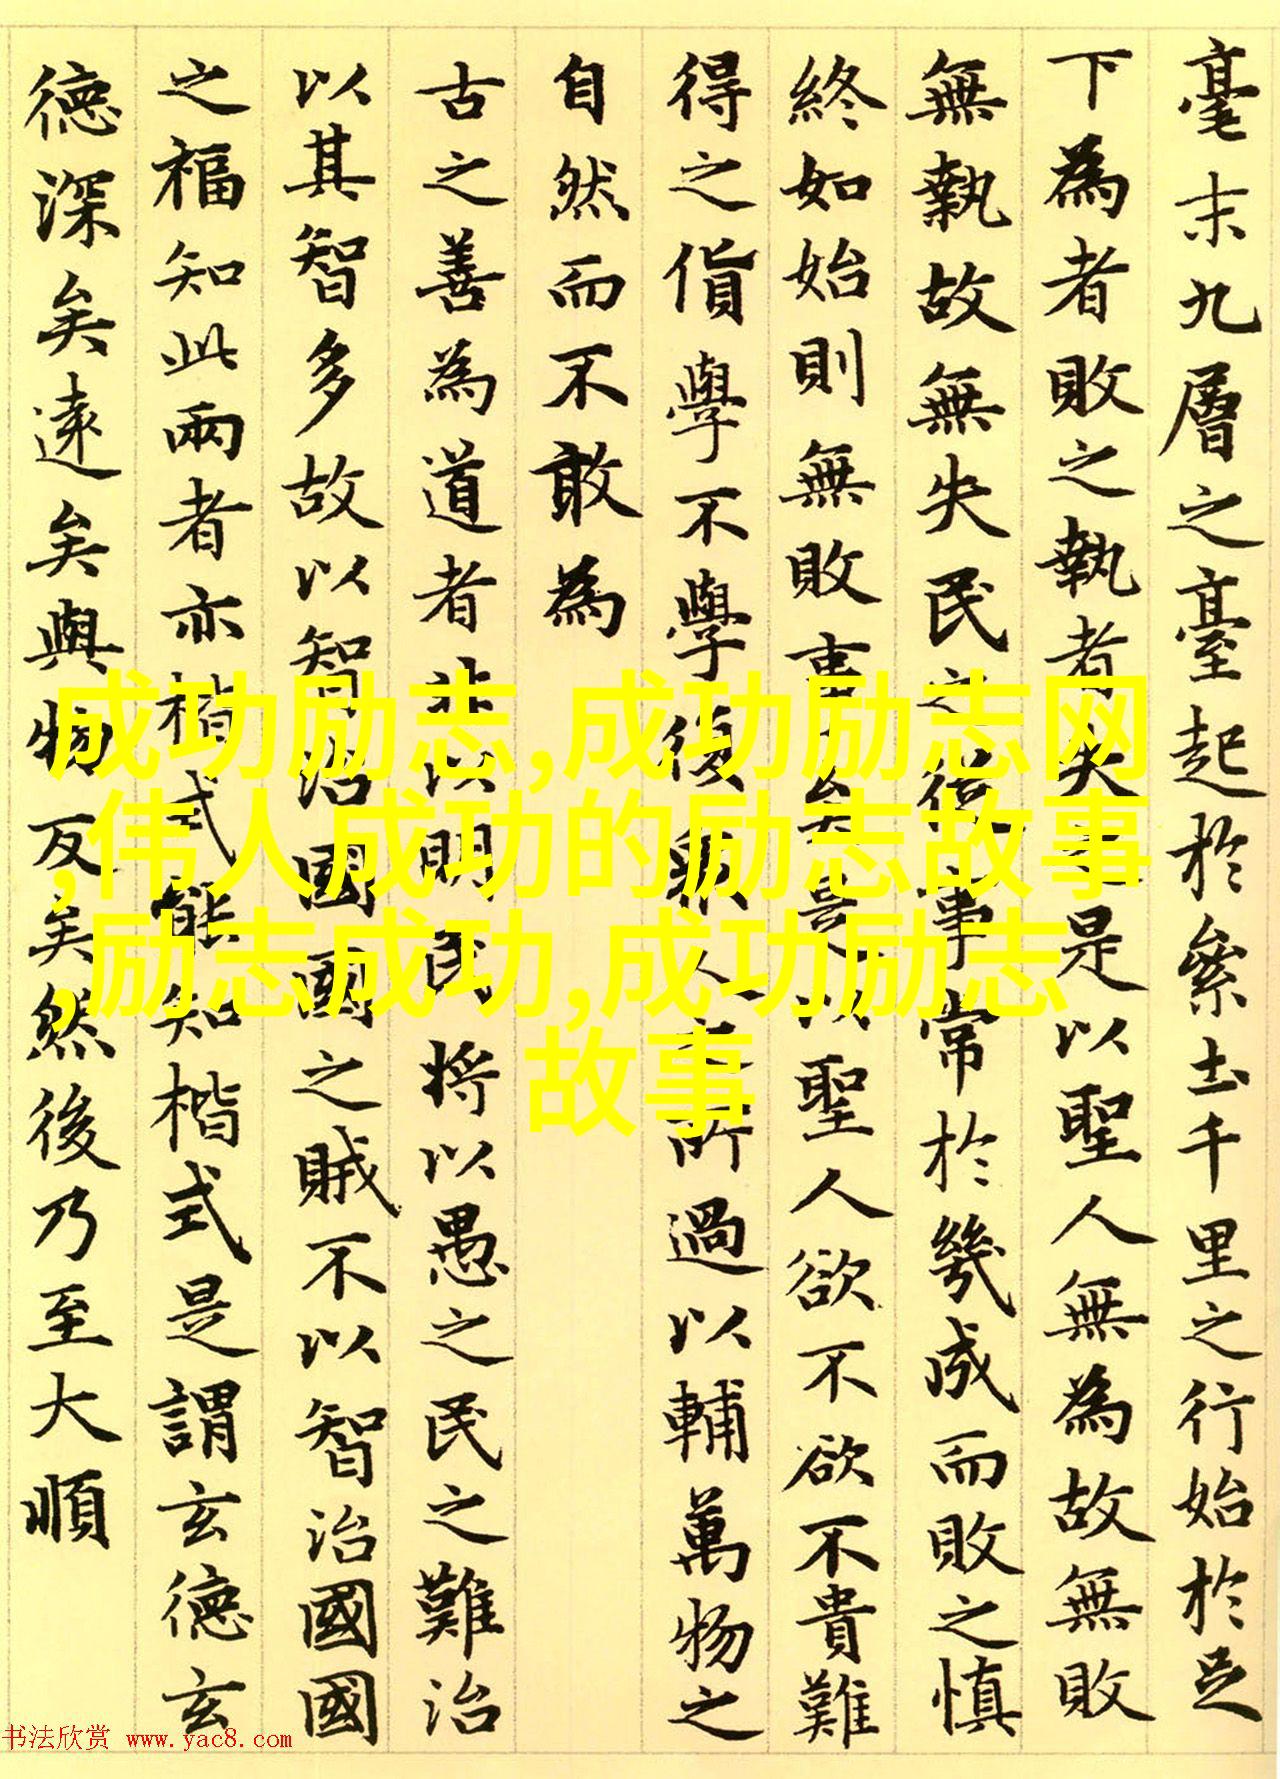 毫末九層之臺起於絫土千里之行始於足
下為者敗之執者失之是以聖人無為故無敗
無執故無失民之從事常於幾成而敗之慎
終如始則無敗事矣是以聖人欲不欲不貴難
得之貨學不學復眾人之所過以輔萬物之
自然而不敢為
古之善為道者非以明民將以愚之民之難治
以其智多故以智治國國之賊不以智治國國
之福知此兩者亦楷式能知楷式是謂玄德玄
德深矣遠矣與物反矣然後乃至大順
成功励志,成功励志网
,伟人成功的励志故事
,励志成功,成功励志
故事
书法欣赏 www.yac8.com